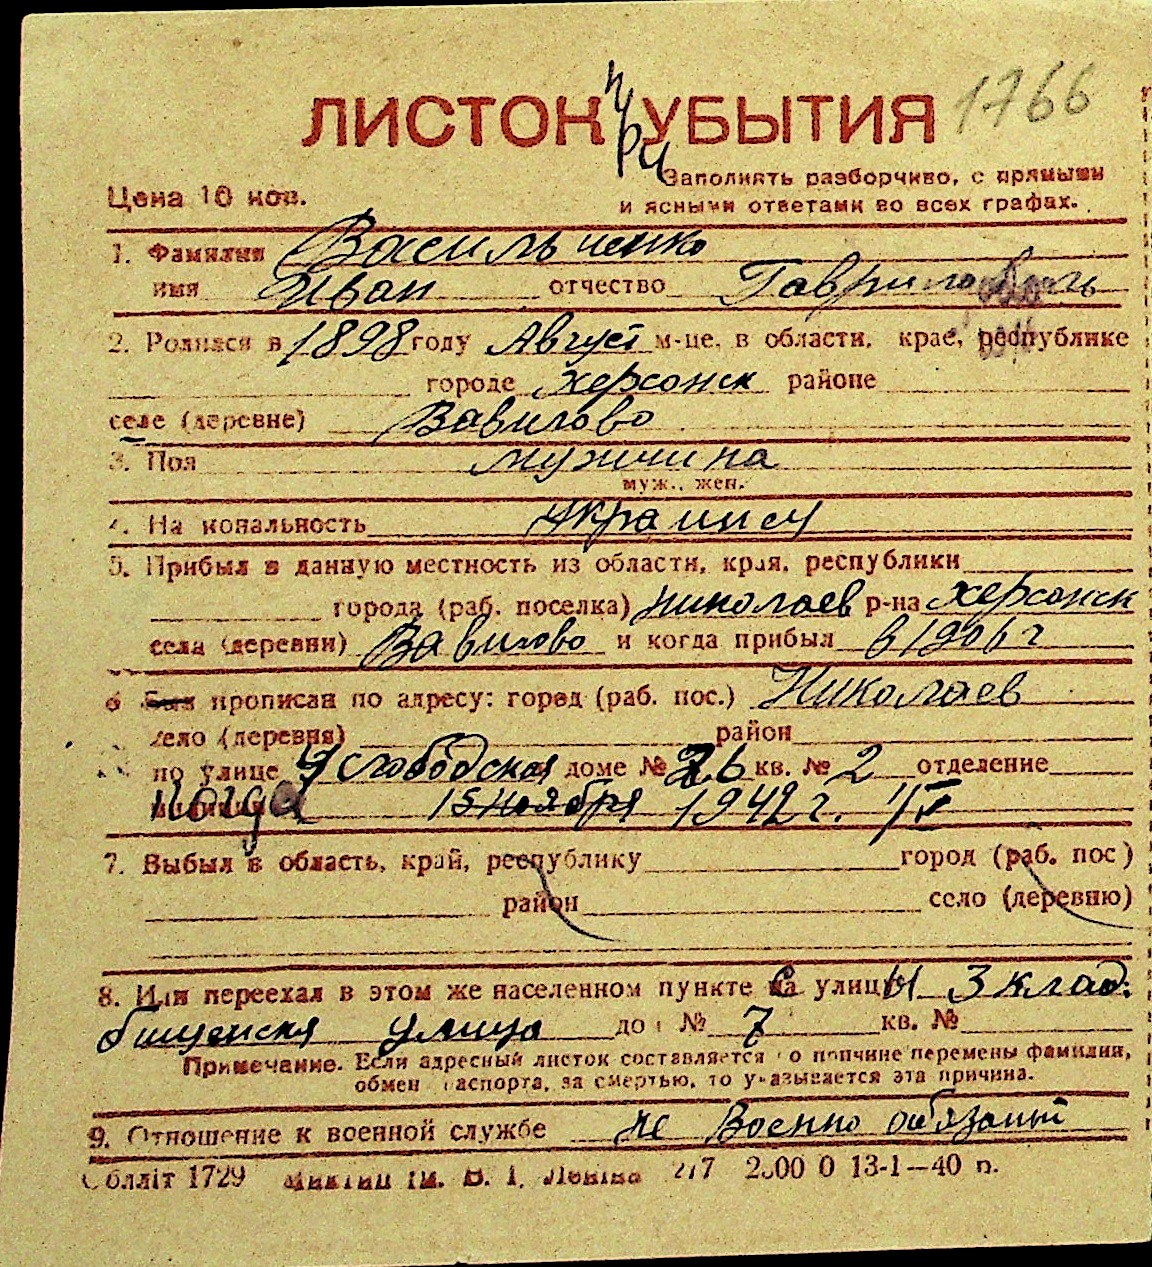 ЛИСТОК при УБЫТИЯ 1766
Заполнять разборчиво, с прямыми
Цена 10 коп.
и ясными ответами во всех графах.
1. Фамилия Васильченко
имя Иван отчество Гаврилович
2. Родился в 1898 году Август м-це, в области, крае, республике
городе Херсонск районе
селе (деревне) Вавилово
3. Пол мужчина
муж., жен.
4. Национальность украинец
5. Прибыл в данную местность из области, края, республики
города (раб. поселка) Николаев р-на Херсонск
села (деревни) Вавилово и когда прибыл в 1906 г
6 Был прописан по адресу: город (раб. пос.) Николаев
село (деревня) район
по улице 9 слободская доме № 26 кв. № 2 отделение
когда 15 ноября 1942 г.
7. Выбыл в область, край, республику город (раб. пос)
район село (деревню)
8. Или переехал в этом же населенном пункте с улицы 3 клад.
бищенская улица дом № 7 кв. №
Примечание. Если адресный листок составляется по причине перемены фамилии,
обмен паспорта, за смертью, то указывается эта причина.
9. Отношение к военной службе не военно обязаный
Облліт 1729 ім. В. І. Леніна 217 2000 0 13-1—40 п.